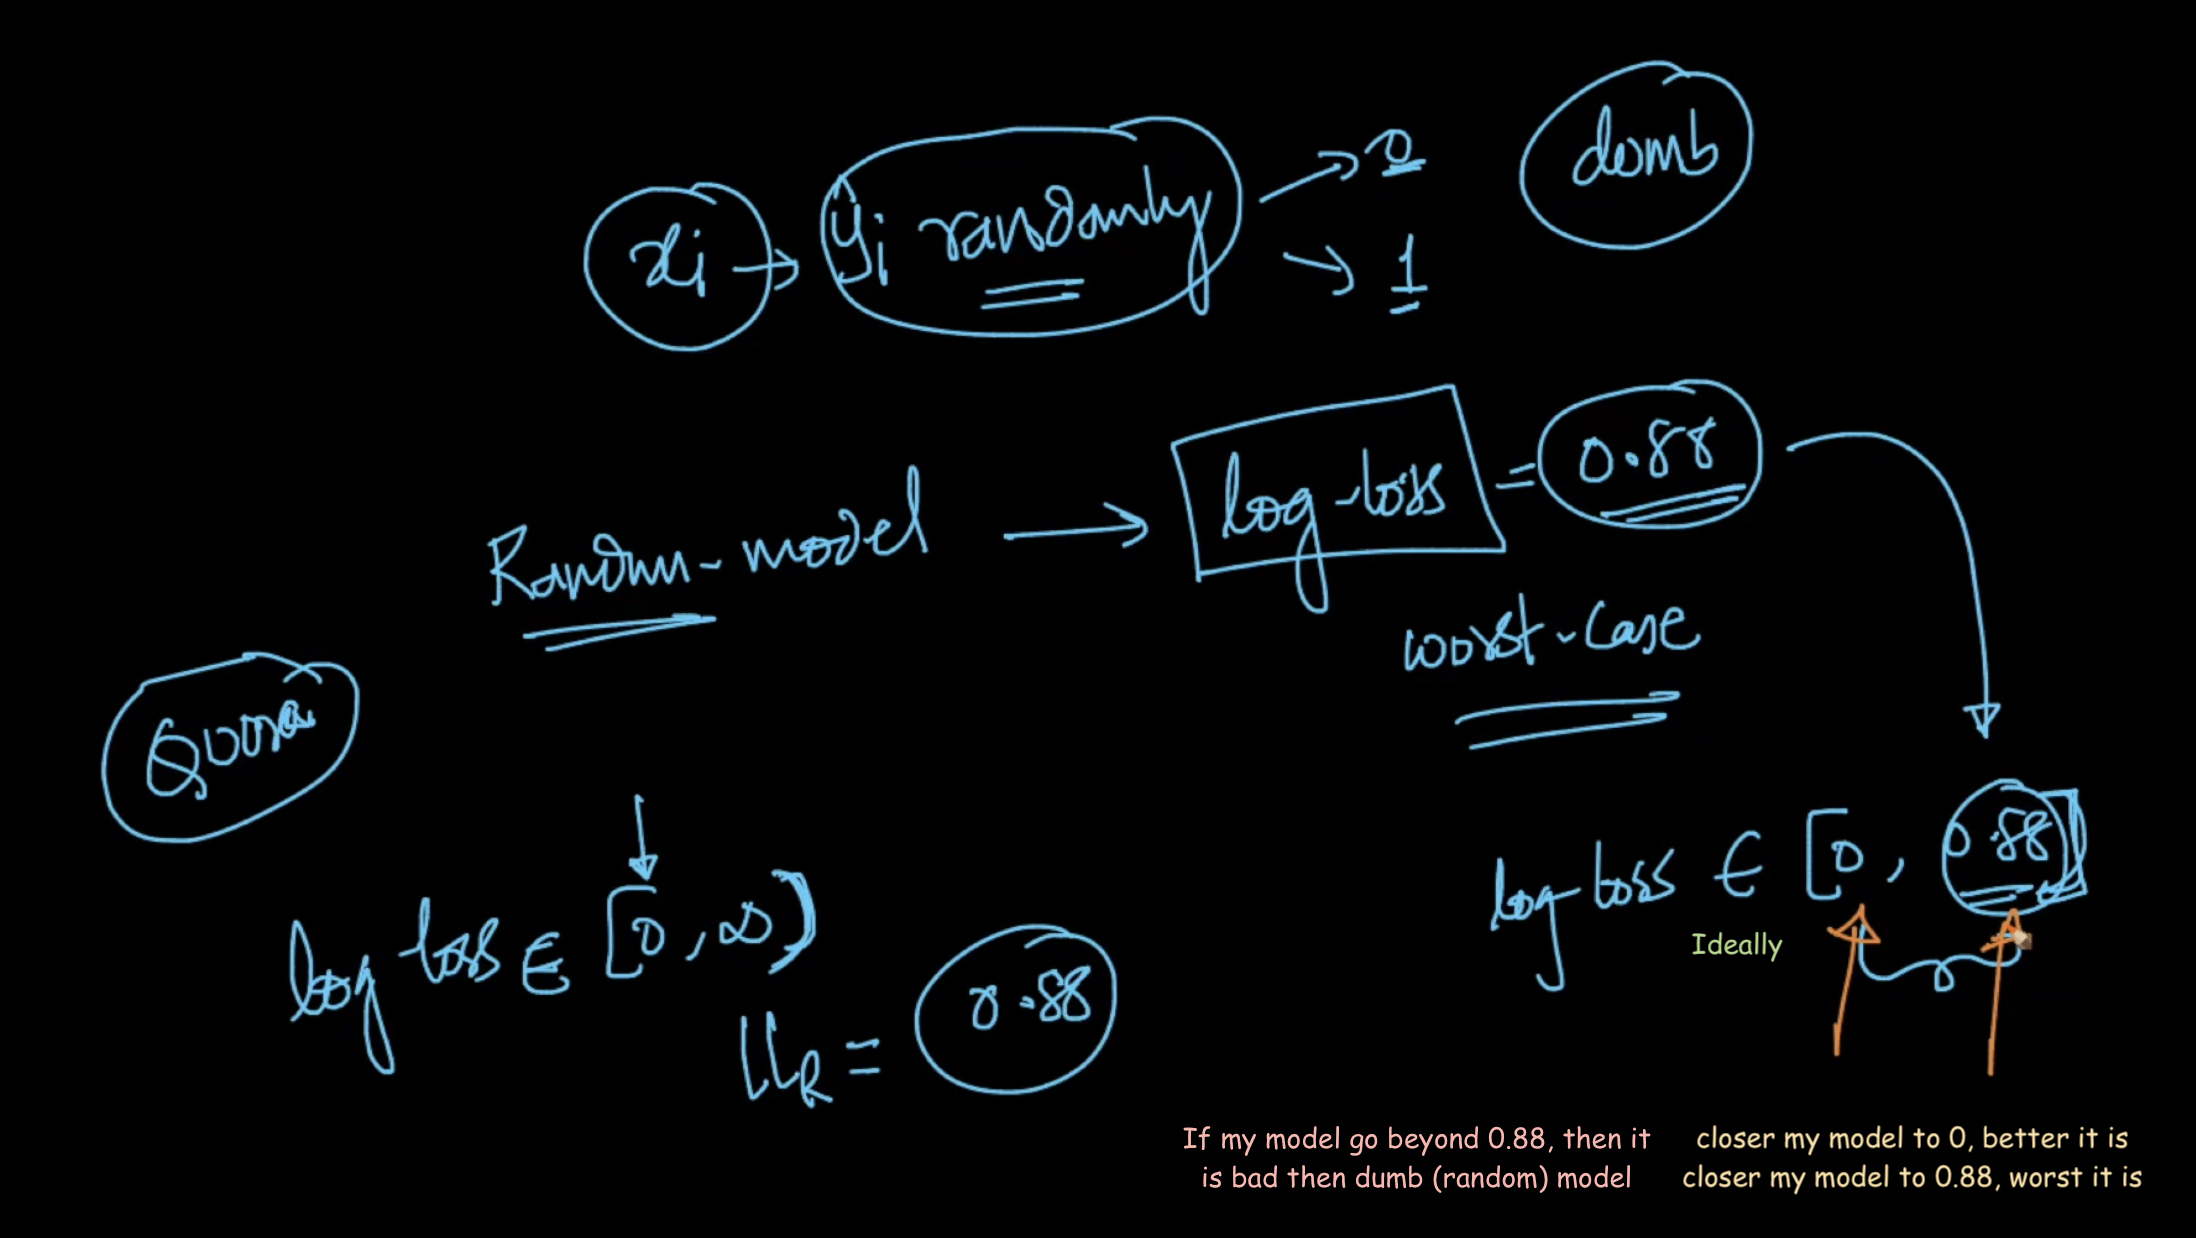 dumb
xi → ŷi randomly → 0
→ 1
Random-model → log-loss = 0.88
worst-case
Quora
log loss ∈ [0, ∞)
log-loss ∈ [0, 0.88]
Ideally
LLR = 0.88
If my model go beyond 0.88, then it
is bad then dumb (random) model
closer my model to 0, better it is
closer my model to 0.88, worst it is